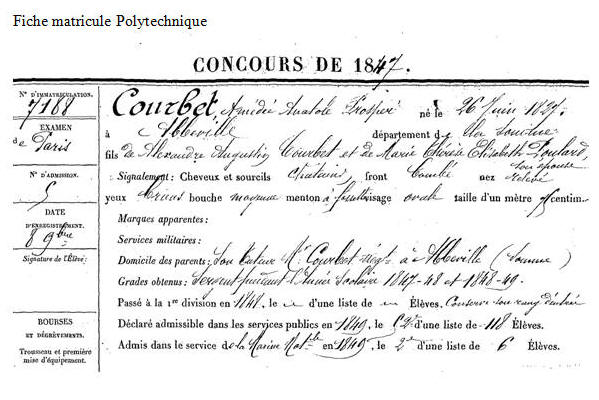 Fiche matricule Polytechnique
CONCOURS DE 1847.
N° D'IMMATRICULATION.
7188
EXAMEN
de Paris
N° D'ADMISSION.
5
DATE
D'ENREGISTREMENT.
8 9bre
Signature de l'Élève:
BOURSES
ET DÉGRÈVEMENTS.
Trousseau et première
mise d'équipement.
Courbet, Amédée Anatole Prosper né le 26 Juin 1827.
à Abbeville département d la Somme
fils de Alexandre Augustin Courbet et de Marie Thérèse Elisabeth son épouse
Signalement: Cheveux et sourcils chatains, front bombé nez relevé
yeux bruns bouche moyenne menton à visage ovale taille d'un mètre centim.
Marques apparentes:
Services militaires:
Domicile des parents: Son tuteur Mr Courbet négt à Abbeville (Somme)
Grades obtenus: Sergent pendant l'année scolaire 1847-48 et 1848-49.
Passé à la 1re division en 1848. le d'une liste de Élèves. Conserve son rang d'entrée
Déclaré admissible dans les services publics en 1849. le d'une liste de 118 Élèves.
Admis dans le service de la Marine en 1849. le 2e d'une liste de 6 Élèves.